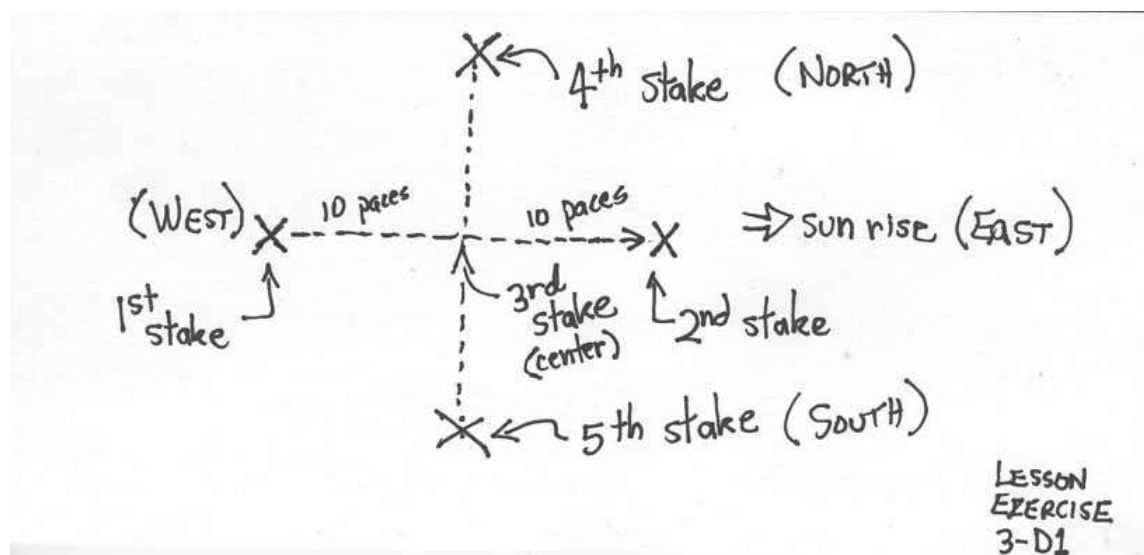 4th stake (NORTH)
(WEST) 10 paces 10 paces ⇒ sun rise (EAST)
1st stake
3rd stake (center)
2nd stake
5th stake (SOUTH)
LESSON
EXERCISE
3-D1